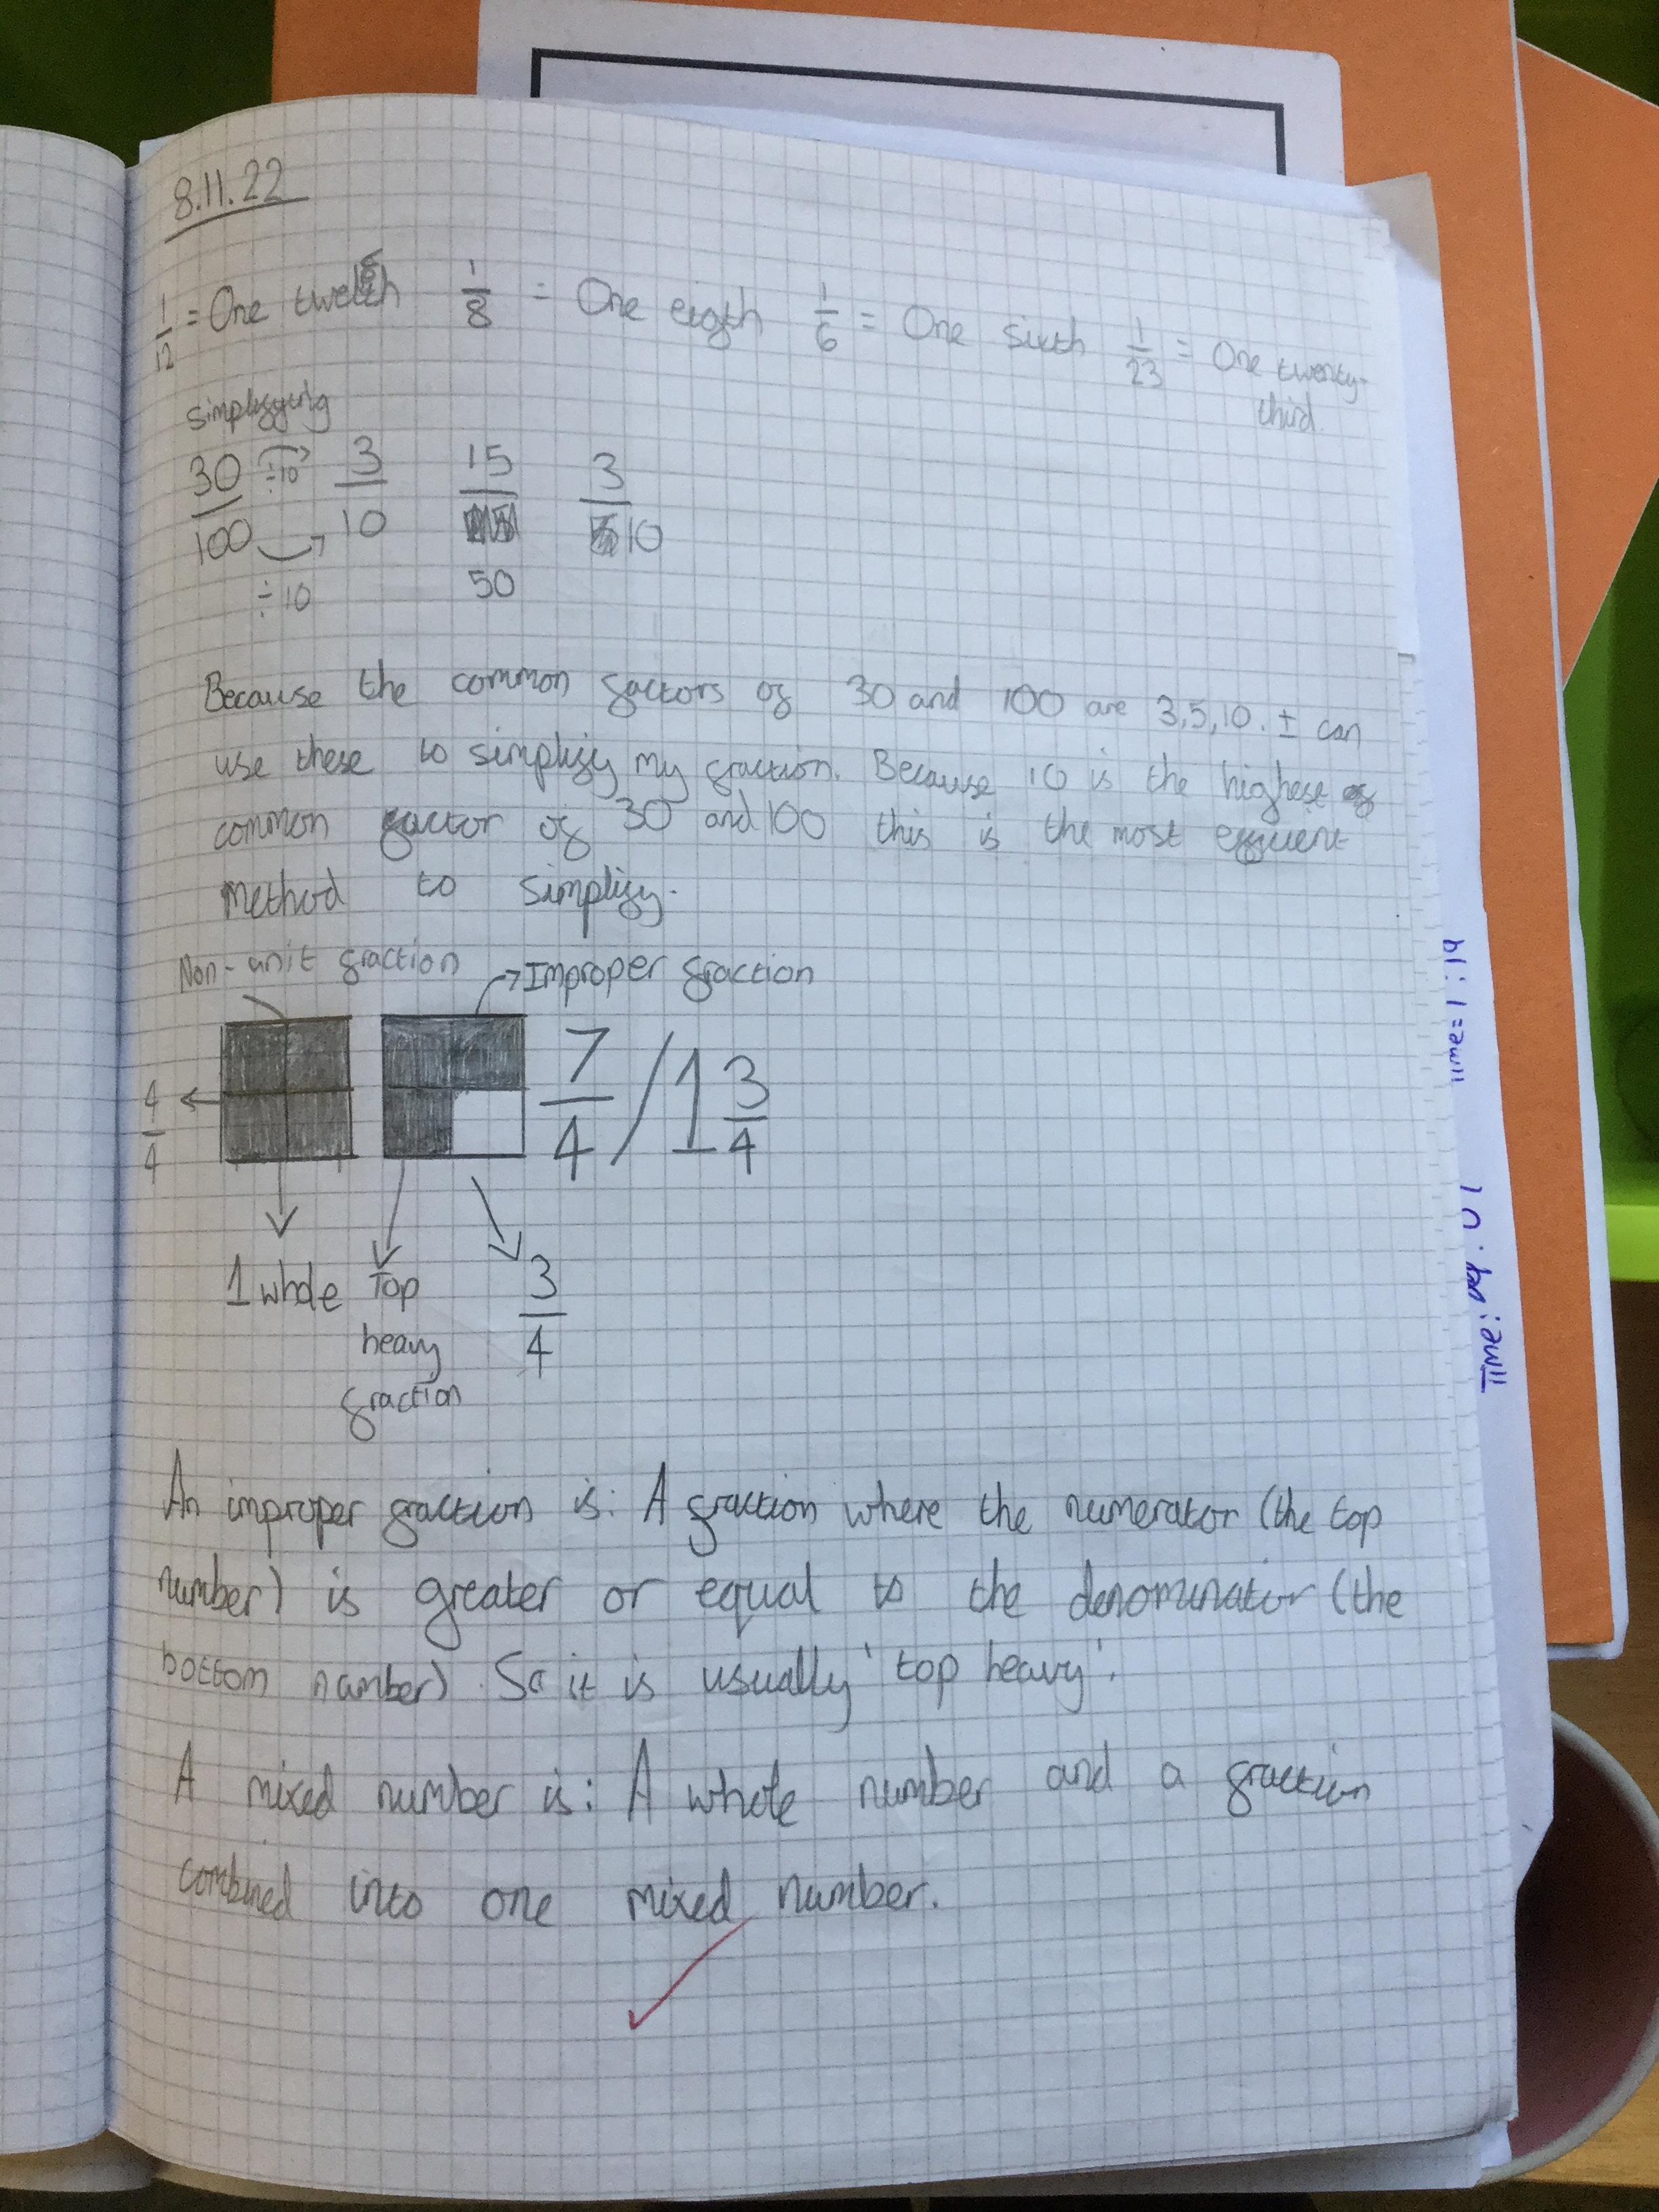 8.11.22
1/12 = One twelfth 1/8 = One eigth 1/6 = One sixth 1/23 = One twenty-
third.
simplifying
30/100 ÷10 ÷10 3/10 15/50 3/10
Because the common factors of 30 and 100 are 3,5,10. I can
use these to simplify my fraction. Because 10 is the highest
common factor of 30 and 100 this is the most efficient
Method to simplify.
Non-unit fraction Improper fraction
4/4 7/4 / 1 3/4
1 whole Top 3/4
heavy
fraction
An improper fraction is: A fraction where the numerator (the top
number) is greater or equal to the denominator (the
bottom number). So it is usually 'top heavy'.
A mixed number is: A whole number and a fraction
combined into one mixed number.
Time=1:19
Time: